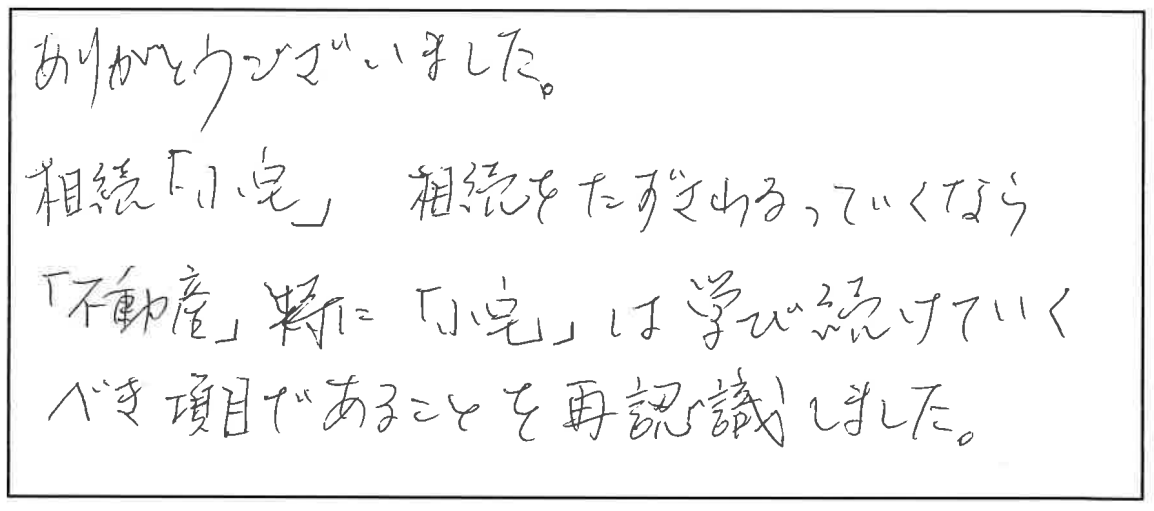 ありがとうございました。
相続「小宅」 相続をたずさわるっていくなら
「不動産」特に「小宅」は学び続けていく
べき項目であることを再認識しました。